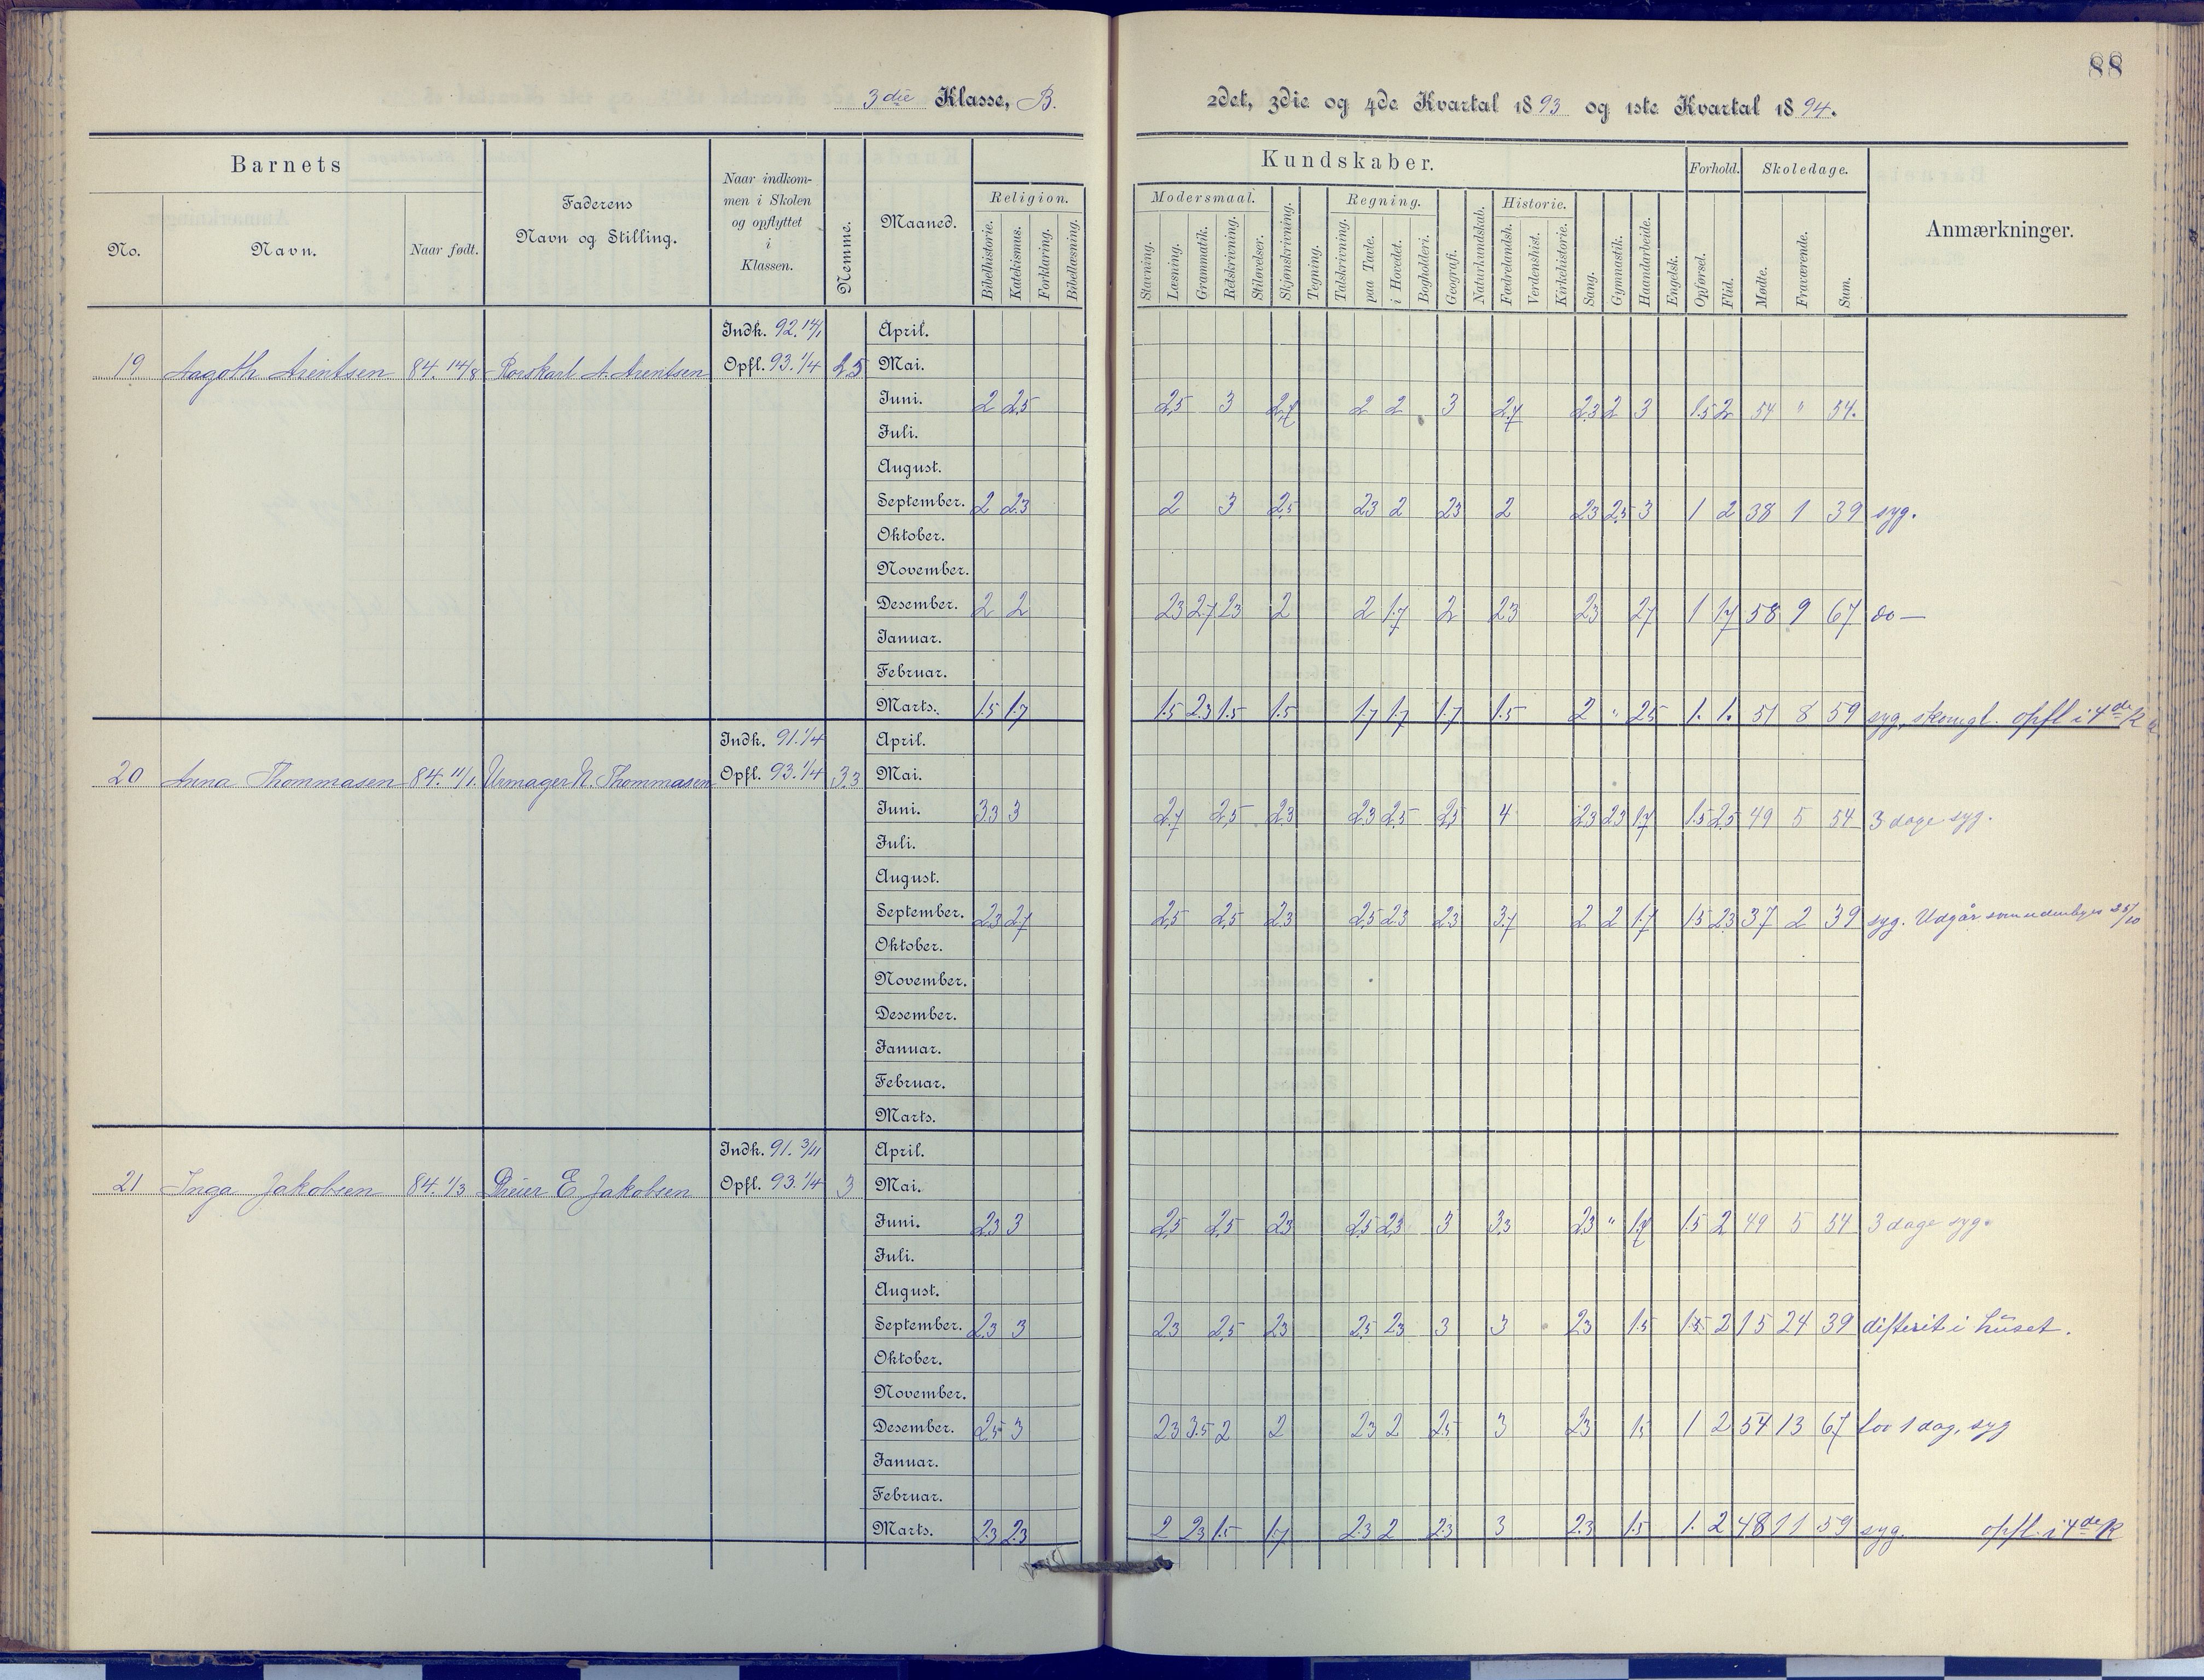 88
3die Klasse, B.
2det, 3die og 4de Kvartal 1893 og 1ste Kvartal 1894.
Barnets
Faderens Navn og Stilling.
Naar indkom-
men i Skolen
og opflyttet
i
Klassen.
Nemme.
Maaned.
Kundskaber.
Forhold.
Skoledage.
Anmærkninger.
No.
Navn.
Naar født.
Religion.
Modersmaal.
Regning.
Historie.
Bibelhistorie.
Katekismus.
Forklaring.
Bibellæsning.
Stavning.
Læsning.
Grammatik.
Retskrivning.
Stiløvelser.
Skjønskrivning.
Tegning.
Talskrivning.
paa Tavle.
i Hovedet.
Bogholderi.
Geografi.
Naturkundskab.
Fædrelandsh.
Verdenshist.
Kirkehistorie.
Sang.
Gymnastik.
Haandarbeide.
Engelsk.
Opførsel.
Flid.
Mødte.
Fraværende.
Sum.
Indk. 92. 14/1 April.
19 Aagoth Arentsen 84. 14/8 Rorskarl A. Arentsen Opfl. 93. 1/4 2.5 Mai.
Juni. 2 2.5 2.5 3 2.7 2 2 3 2.7 2.3 2 3 1.5 2 54 " 54.
Juli.
August.
September. 2 2.3 2 3 2.5 2.3 2 2.3 2 2.3 2.5 3 1 2 38 1 39 syg.
Oktober.
November.
Desember. 2 2 2.3 2.7 2.3 2 2 1.7 2 2.3 2.3 2.7 1 1.7 58 9 67 do —
Januar.
Februar.
Marts. 1.5 1.7 1.5 2.3 1.5 1.5 1.7 1.7 1.7 1.5 2 " 2.5 1. 1. 51 8 59 syg, opfl i 4de K
Indk. 91. 1/4 April.
20 Anna Thommasen 84. 11/1. Urmager N. Thommasen Opfl. 93. 1/4 3.3 Mai.
Juni. 3.3 3 2.7 2.5 2.3 2.3 2.5 2.5 4 2.3 2.3 1.7 1.5 2.5 49 5 54 3 dage syg.
Juli.
August.
September. 2.3 2.7 2.5 2.5 2.3 2.5 2.3 2.3 3.7 2 2 1.7 1.5 2.3 37 2 39 syg. Udgår som udenbyes 25/10
Oktober.
November.
Desember.
Januar.
Februar.
Marts.
Indk. 91. 3/11 April.
21 Inga Jakobsen 84. 1/3 Dreier E. Jakobsen Opfl. 93. 1/4 3 Mai.
Juni. 2.3 3 2.5 2.5 2.3 2.5 2.3 3 3.3 2.3 " 1.7 1.5 2 49 5 54 3 dage syg.
Juli.
August.
September. 2.3 3 2.3 2.5 2.3 2.5 2.3 3 3 2.3 1.5 1.5 2 15 24 39 difterit i huset.
Oktober.
November.
Desember. 2.5 3 2.3 3.5 2 2 2.3 2 2.5 3 2.3 1.5 1 2 54 13 67 lov 1 dag, syg
Januar.
Februar.
Marts. 2.3 2.3 2 2.3 1.5 1.7 2.3 2 2.3 3 2.3 1.5 1. 2 48 11 59 syg. opfl. i 4de K